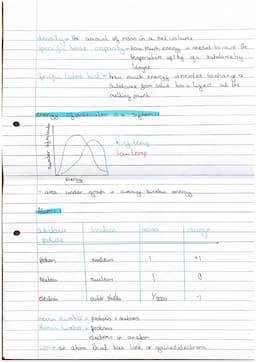 density - the amount of mass in a set volume
specific heat capacity - how much energy is needed to raise the
temperature of 1kg of a substance by
1 degree
specific latent heat - how much energy is needed to change a
substance from solid to a liquid at the
melting point
energy of molecules in a system
Number of molecules
high temp
low temp
energy
- area under graph is average kinetic energy
Atoms
subatomic
particle
location
mass
charge
proton
nucleus
1
+1
neutron
nucleus
1
0
electron
outer shells
-1
mass number = protons + neutrons
number = protons
electrons in an atom
ion - an atom that has lost or gained electrons